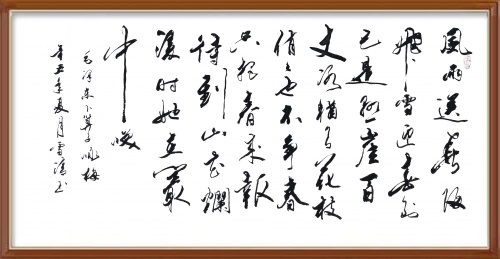 風雨送春歸
飛雪迎春到
已是懸崖百
丈冰猶有花枝
俏俏也不爭春
只把春來報
待到山花爛
漫時她在叢
中笑
毛澤東卜算子咏梅
辛丑年夏月雪